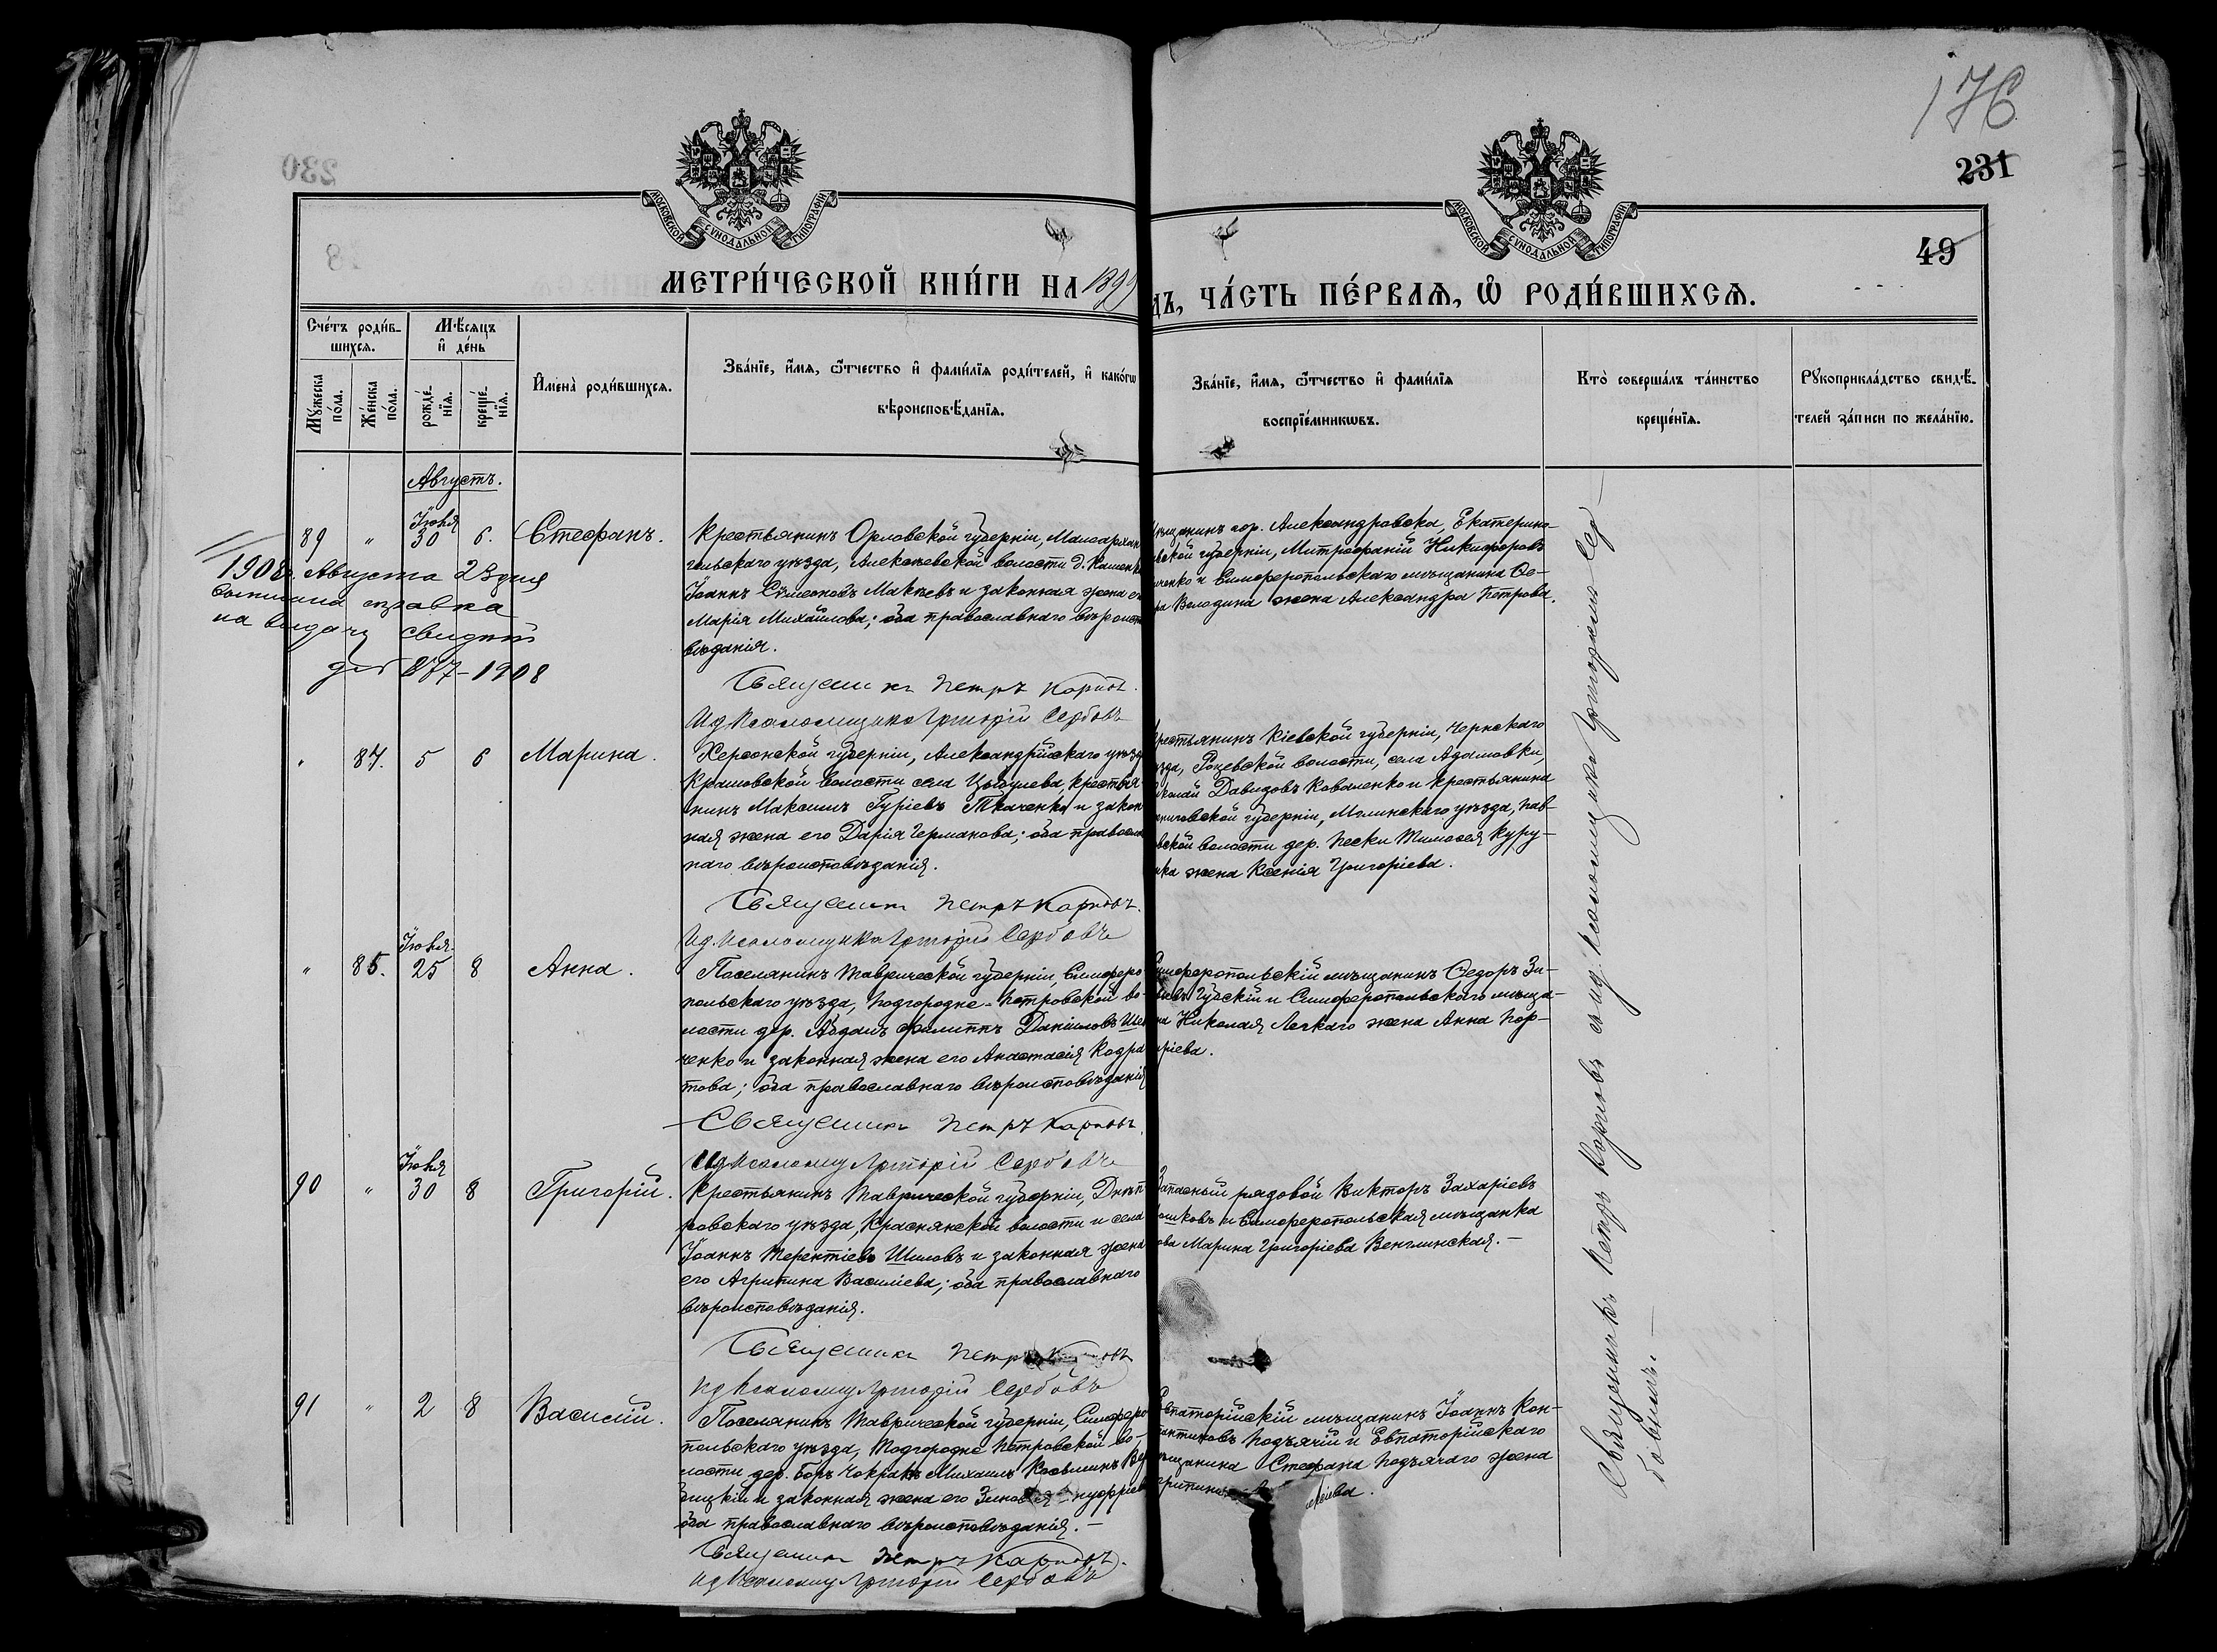 230
176
231
49
МОСКОВСКОЙ СѴНОДАЛЬНОЙ ТИПОГРАФІИ
МОСКОВСКОЙ СѴНОДАЛЬНОЙ ТИПОГРАФІИ
МЕТРИ́ЧЕСКОЙ КНИ́ГИ НА 1899
ДЪ, ЧА́СТЬ ПЕ́РВАѦ, Ѽ РОДИ́ВШИХСѦ.
Сче́тъ роди́в-
шихсѧ.
Мѣ́сѧцъ
и҆ де́нь
Мꙋ́жеска
по́ла.
Же́нска
по́ла.
рожде́-
нїѧ.
креще́-
нїѧ.
И҆мена̀ роди́вшихсѧ.
Зва́нїе, и҆́мѧ, ѻ҆́тчество и҆ фами́лїѧ роди́телей, и҆ како́гѡ
вѣроисповѣ́данїѧ.
Зва́нїе, и҆́мѧ, ѻ҆́тчество и҆ фами́лїѧ
воспрїе́мникѡвъ.
Кто̀ соверша́лъ та́инство
креще́нїѧ.
Рꙋкоприкла́дство свидѣ́-
телей за́писи по жела́нїю.
Августъ.
89 " Іюля 30 6. Стефанъ.
Крестьянинъ Орловской губерніи, Малоархан
гельскаго уѣзда, Алексѣевской волости д. Каменки
Іоаннъ Сѵмеоновъ Макѣевъ и законная жена его
Марія Михайлова; оба православнаго вѣроиспо
вѣданія.
Священникъ Петръ Карповъ.
Ид. Псаломщика Григорій Сербовъ
Мѣщанинъ гор. Александровска, Екатерино-
вской губерніи, Митрофаній Никифоровъ
ченко и Симферопольскаго мѣщанина Ѳе-
ра Володина жена Александра Петрова.
1908 Августа 23 дня
справка
на выдачу
877-1908
" 87. 5 6 Марина.
Херсонской губерніи, Александрійскаго уѣзда
волости села Цыбулева, крестья
нинъ Максимъ Гуріевъ Ткаченко и закон
ная жена его Дарія Германова; оба правосла
наго вѣроисповѣданія.
Священникъ Петръ Карповъ.
Ид. Псаломщика Григорій Сербовъ
Крестьянинъ Кіевской губерніи,
зда, волости, села Адамовки,
Николай Давидовъ Коваленко и крестьянина
ниговской губерніи, Мглинскаго уѣзда, Пав-
вской волости дер. Пески Тимоѳея Куру-
нка жена Ксенія Григоріева.
" 85. Іюля 25 8 Анна.
Поселянинъ Таврической губерніи, Симферо
польскаго уѣзда, Подгородне-Петровской во-
лости дер. Абдалъ Филиппъ Даніиловъ Шев
ченко и законная жена его Анастасія Кодра
това; оба православнаго вѣроисповѣданія
Священникъ Петръ Карповъ.
Ид Псаломщ Григорій Сербовъ
Симферопольскій мѣщанинъ Ѳедоръ Зи-
вьевъ Губскій и Симферопольскаго мѣща-
на Николая Легкаго жена Анна Пор-
иріева.
90 " Іюля 30 8 Григорій.
Крестьянинъ Таврической губерніи, Днѣп
ровскаго уѣзда, Краснянской волости и села
Іоаннъ Терентіевъ Шиловъ и законная жена
его Агрипина Василіева; оба православнаго
вѣроисповѣданія.
Священникъ Петръ Карповъ
Ид Псаломщ Григорій Сербовъ
Запасный рядовой Викторъ Захаріевъ
ошковъ и Симферопольская мѣщанка
ова Марина Григоріева Венглинская.—
91 " 2 8 Василій.
Поселянинъ Таврической губерніи, Симферо
польскаго уѣзда, Подгородне Петровской во-
лости дер. Боръ Чокракъ Михаилъ Косьминъ Вер
бицкій и законная жена его Зиновія нуфріев
оба православнаго вѣроисповѣданія.—
Священникъ Петръ Карповъ.
Ид Псаломщ Григорій Сербовъ
Евпаторійскій мѣщанинъ Іоаннъ Кон-
стантиновъ Подъячій и Евпаторійскаго
мѣщанина Стефана Подъячаго жена
Священникъ Петръ Карповъ съ ид. псаломщика Григоріемъ Сер-
бовымъ.—